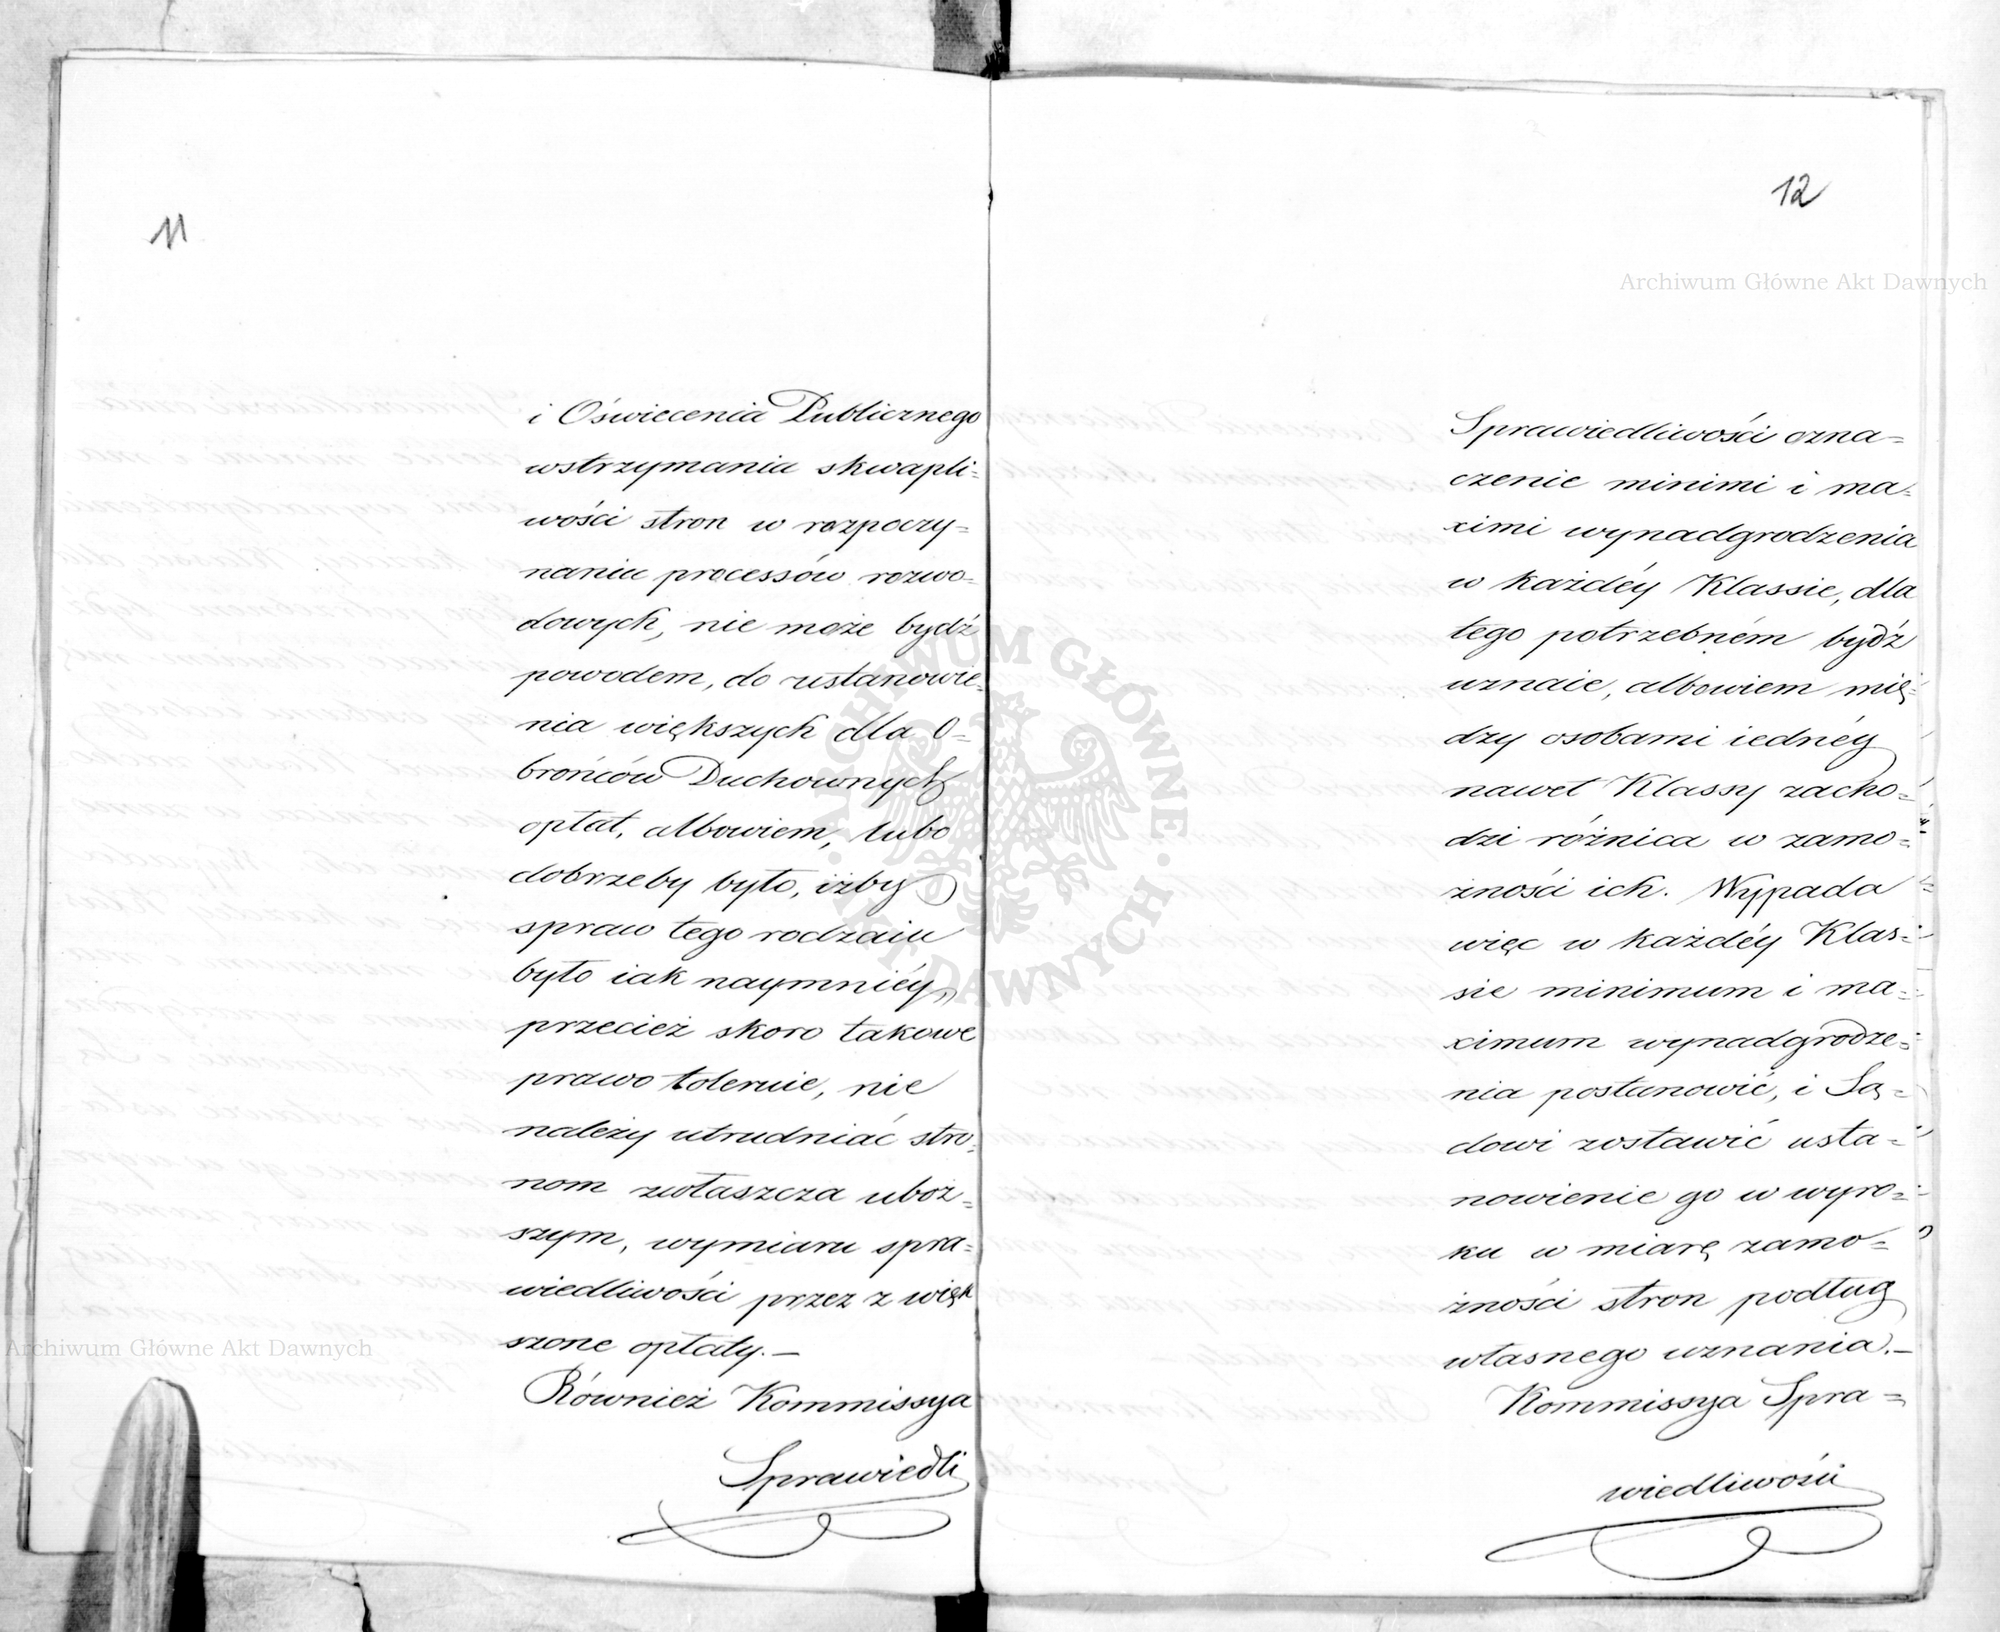 11
i Oświecenia Publicznego
wstrzymania skwapli=
wości stron w rozpoczy=
naniu processów rozwo=
dowych, nie może bydź
powodem, do ustanowie=
nia większych dla O=
brońców Duchownych
opłat, albowiem, lubo
dobrzeby było, iżby
spraw tego rodzaiu
było iak naymniéy,
przecież skoro takowe
prawo toleruie, nie
należy utrudniać stro=
nom zwłaszcza uboż=
szym, wymiaru spra=
wiedliwości przez z więk
szone opłaty.—
Również Kommissya
Sprawiedli
12
Archiwum Główne Akt Dawnych
Sprawiedliwości ozna=
czenie minimi i ma=
ximi wynadgrodzenia
w każdéy Klassie, dla
tego potrzebném bydź
uznaie, albowiem mię=
dzy osobami iednéy
nawet Klassy zacho=
dzi różnica w zamo=
żności ich. Wypada
więc w każdéy Klas=
sie minimum i ma=
ximum wynadgrodze=
nia postanowić, i Są=
dowi zostawić usta=
nowienie go w wyro=
ku w miarę zamo=
żności stron podług
własnego uznania.—
Kommissya Spra=
wiedliwości
Archiwum Główne Akt Dawnych
ARCHIWUM GŁÓWNE · AKT DAWNYCH ·